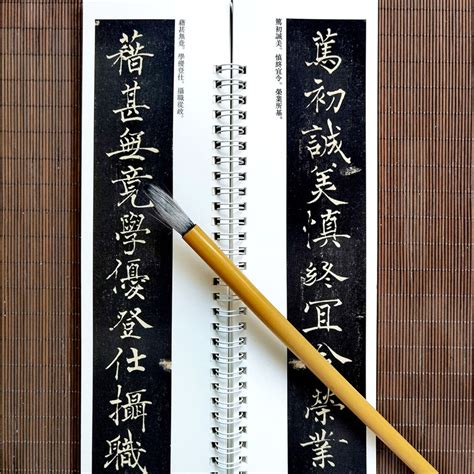 篤初誠美慎終宜令榮業
篤初誠美，慎終宜令。榮業所基，
藉甚無竟。學優登仕，攝職從政。
藉甚無竟學優登仕攝職